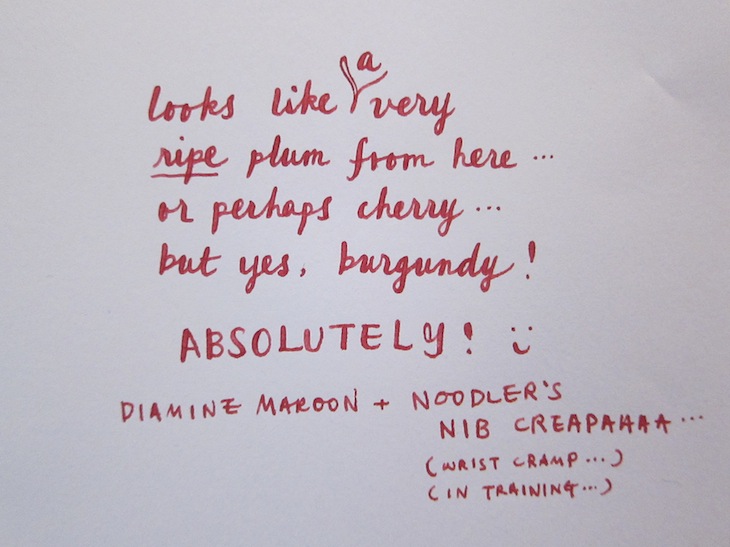 looks like a very
ripe plum from here ...
or perhaps cherry ...
but yes, burgundy!
ABSOLUTELY! :)
DIAMINE MAROON + NOODLER'S
NIB CREAPAHAA...
(WRIST CRAMP...)
(IN TRAINING...)